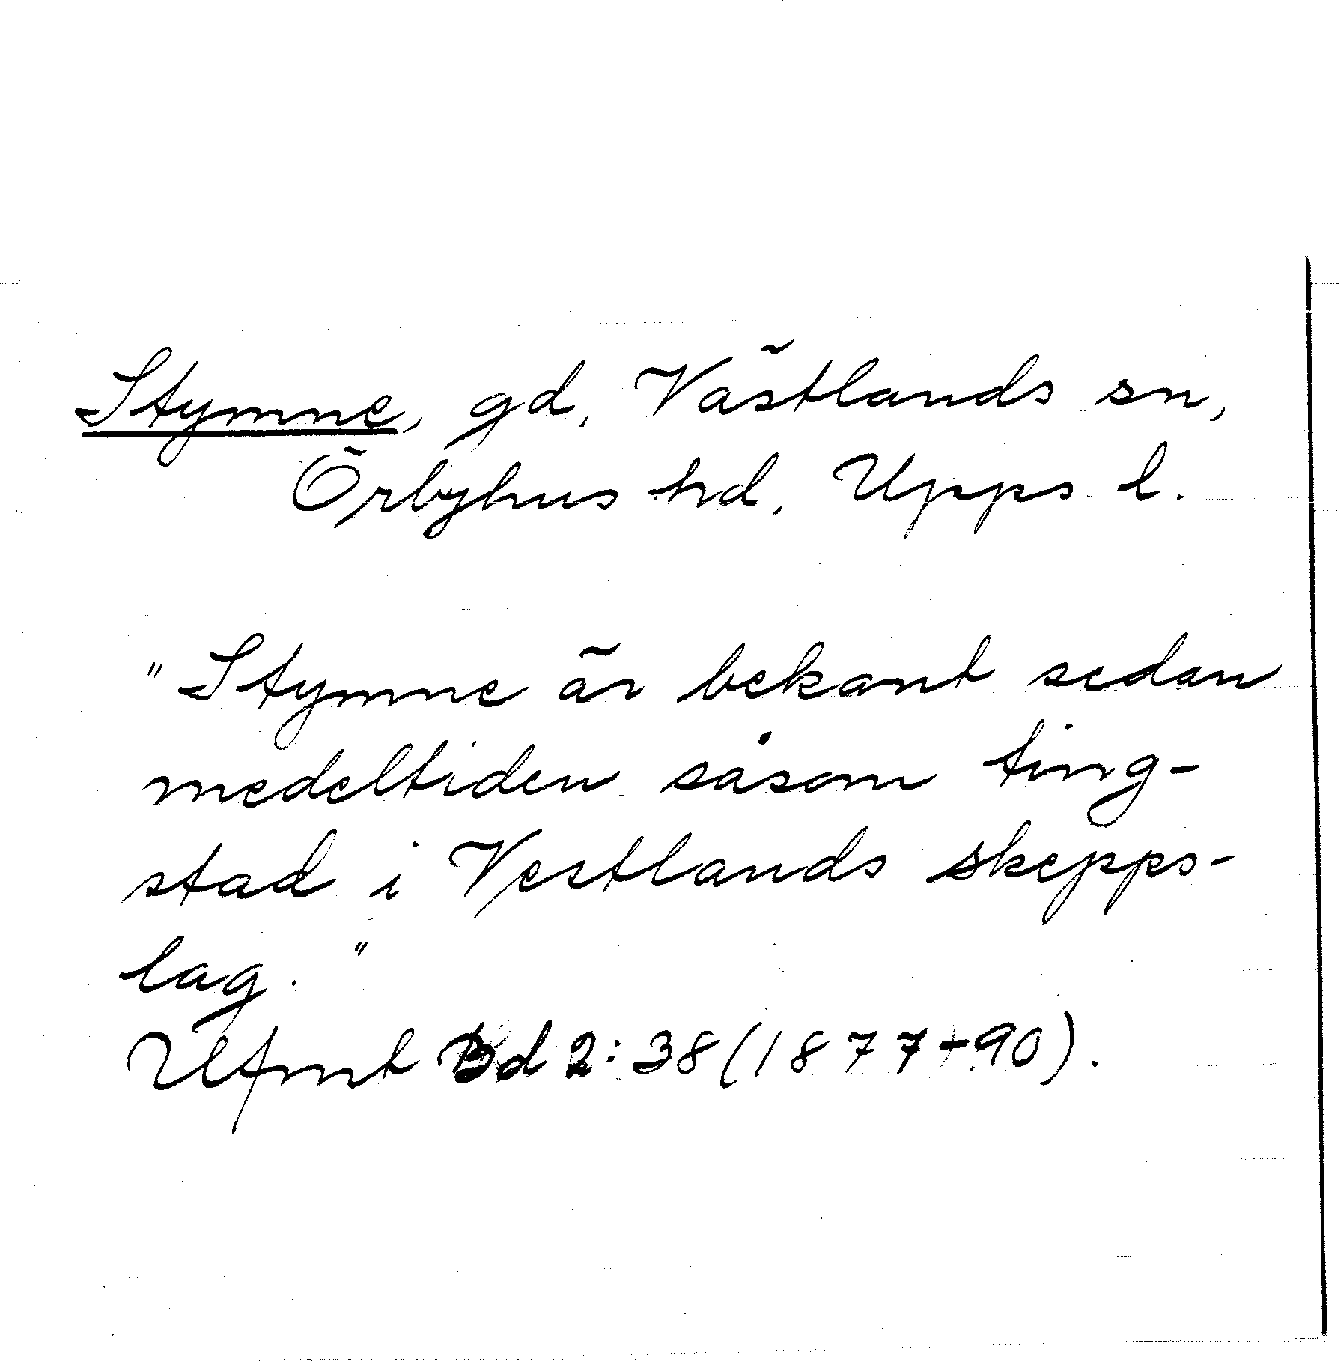 Stymne, gd, Västlands sn,
Örbyhus hd, Upps l.
"Stymne är bekant sedan
medeltiden såsom ting-
stad i Vestlands skepps-
lag."
Ufmt Bd 2:38 (1877+90).